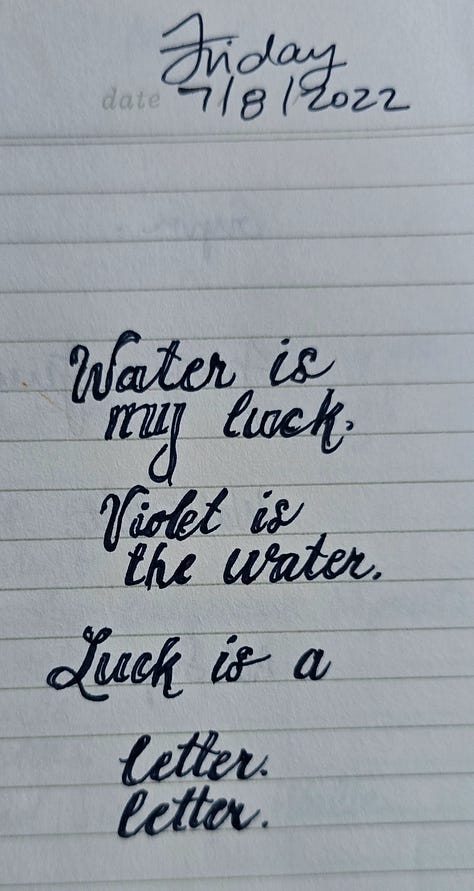 Friday
date 7/8/2022
Water is
my luck.
Violet is
the water.
Luck is a
letter.
letter.